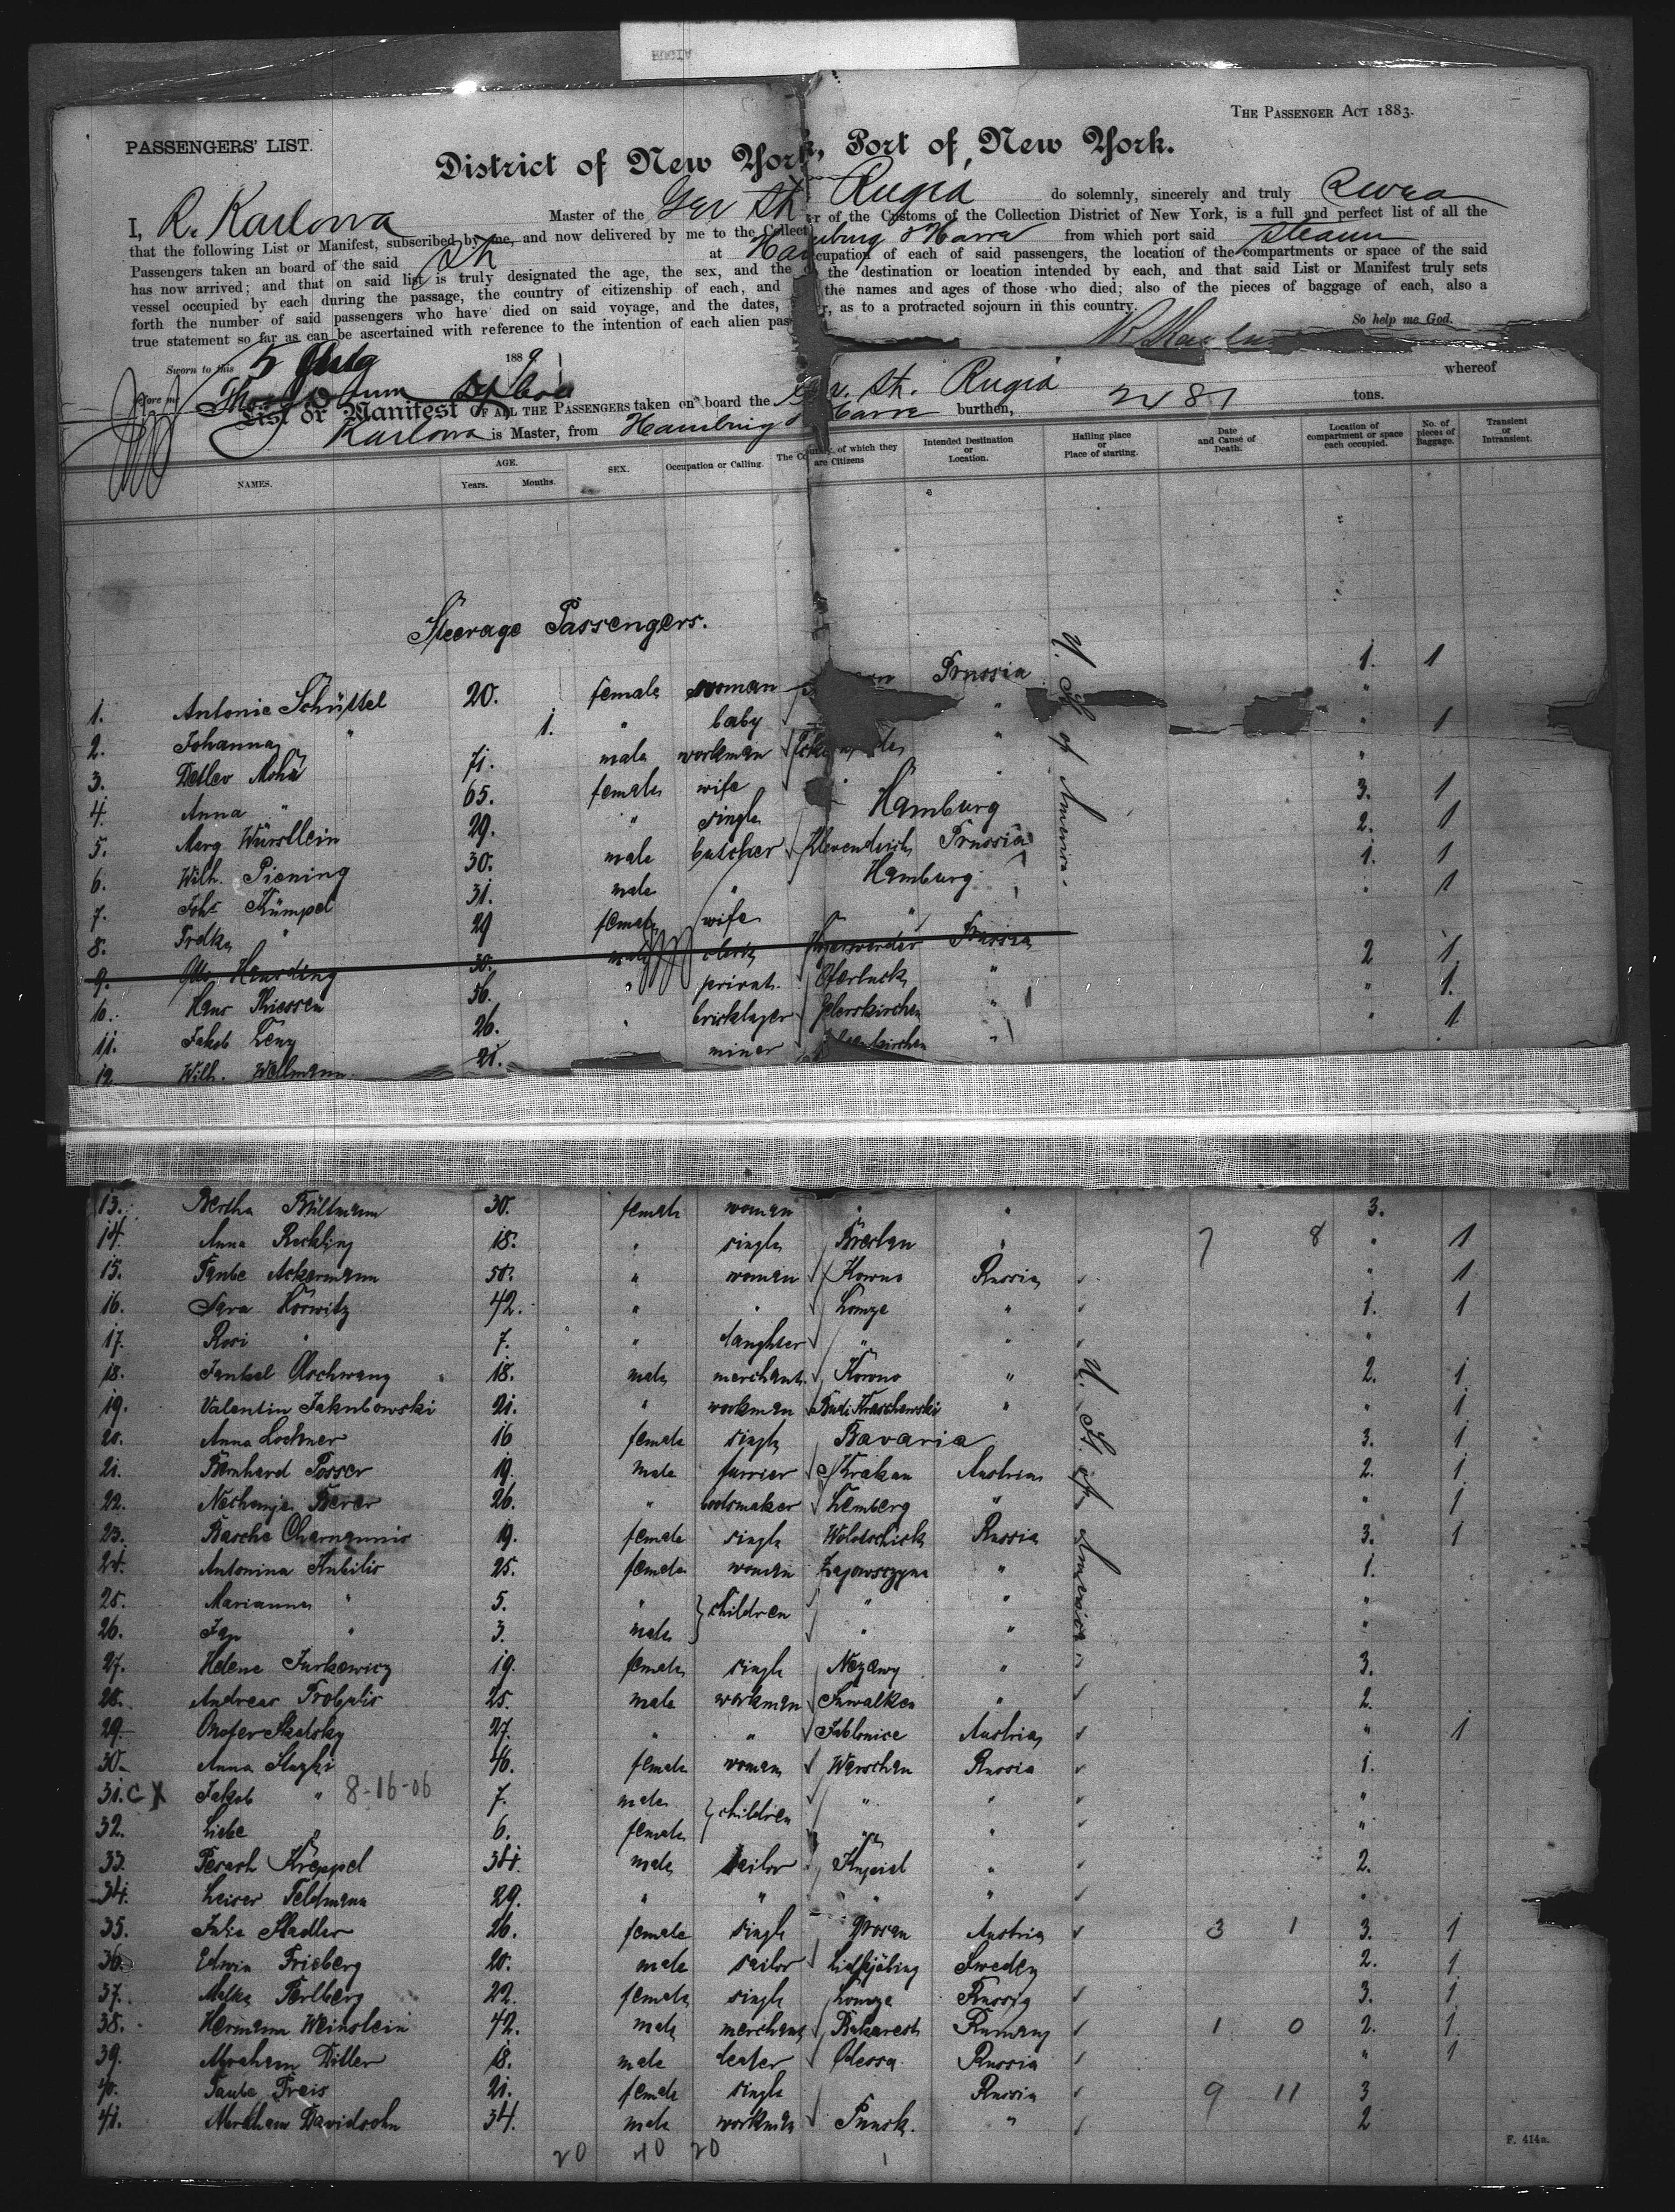 THE PASSENGER ACT 1883.
PASSENGERS' LIST.
District of New York, Port of New York.
I, R. Karlowa Master of the Ger St Rugia do solemnly, sincerely and truly swea
that the following List or Manifest, subscribed by me, and now delivered by me to the Collector of the Customs of the Collection District of New York, is a full and perfect list of all the
Passengers taken an board of the said St at Hamburg & Havre from which port said steamr
has now arrived; and that on said list is truly designated the age, the sex, and the occupation of each of said passengers, the location of the compartments or space of the said
vessel occupied by each during the passage, the country of citizenship of each, and the destination or location intended by each, and that said List or Manifest truly sets
forth the number of said passengers who have died on said voyage, and the dates, the names and ages of those who died; also of the pieces of baggage of each, also a
true statement so far as can be ascertained with reference to the intention of each alien pas r, as to a protracted sojourn in this country.
So help me God.
Sworn to this 5 Aug 1889
before me
List or Manifest OF ALL THE PASSENGERS taken on board the Ger. St. Rugia whereof
Karlowa is Master, from Hamburg & Havre burthen, 2487 tons.
NAMES. AGE. Years. Months. SEX. Occupation or Calling. The Country of which they are Citizens Intended Destination or Location. Hailing place or Place of starting. Date and Cause of Death. Location of compartment or space each occupied. No. of pieces of Baggage. Transient or Intransient.
Steerage Passengers.
U. St. of America.
1. Antonie Schüttel 20. female woman Prussia 1. 1
2. Johanna " 1. " baby " "
3. Detlev Mohr 71. male workman " " 1
4. Anna " 65. female wife " "
5. Marg Würstlein 29. " single Hamburg 3. 1
6. Wilh. Piening 30. male butcher Klevendeich Prussia 2. 1
7. Johs Kümpel 31. male " Hamburg 1. 1
8. Frdke " 29 female wife " " 1
9. Otto Harding 30. male clerk Prussia
10. Hans Thiessen 56. " privat. " 2 1
11. Jakob Lenz 26. " bricklayer Gelerskirchen " " 1.
12. Wilh. Wellmann 21. miner " " 1
13. Bertha Bültmann 30. female woman " " 3.
14. Anna Rechling 18. " single Breslau " 7 8 " 1
15. Taube Ackermann 50. " woman Kowno Russia " 1
16. Sara Horwitz 42. " " Lomze " 1. 1
17. Rosi " 7. " daughter " " "
18. Jankel Olschwang 18. male merchant Kowno " 2. 1
19. Valentin Jakubowski 21. " workman " " 1
20. Anna Lochner 16 female single Bavaria 3. 1
21. Bernhard Posser 19. male furrier Krakau Austria 2. 1
22. Nechemje Berer 26. " bootsmaker Lemberg " " 1
23. Basche 19. female single Wolotschisk Russia 3. 1
24. Antonina Kubilis 25. female woman " 1.
25. Marianna " 5. " } children " " "
26. Jan " 3. male " " "
27. Helene Jurkewicz 19. female single Nezewy " 3.
28. Andreas Trobalis 25. male workman Suwalken " 2.
29. Onofer Skalsky 27. " " Jablonice Austria " 1
30. Anna Slazki 40. female woman Warschau Russia 1.
31. C X Jakob " 8-16-06 7. male } children " " "
32. Liebe " 6. female " " "
33. Pesach Kreppel 34. male tailor " 2.
34. Leiser Feldmann 29. " " " " "
35. Julie Stadler 26. female single Austria 3 1 3. 1
36. Edwin Frieberg 20. male sailor Lidköping Sweden 2. 1
37. Malke Perlberg 22. female single Lomza Russia 3. 1
38. Hermann Weinstein 42. male merchant Bukarest Rumany 1 0 2. 1
39. Abraham Diller 18. male Odessa Russia " 1
40. Taube Freis 21. female single Russia 9 11 3
41. Abraham Davidsohn 34. male workman Pinsk. " 2
20 40 20
F. 414a.